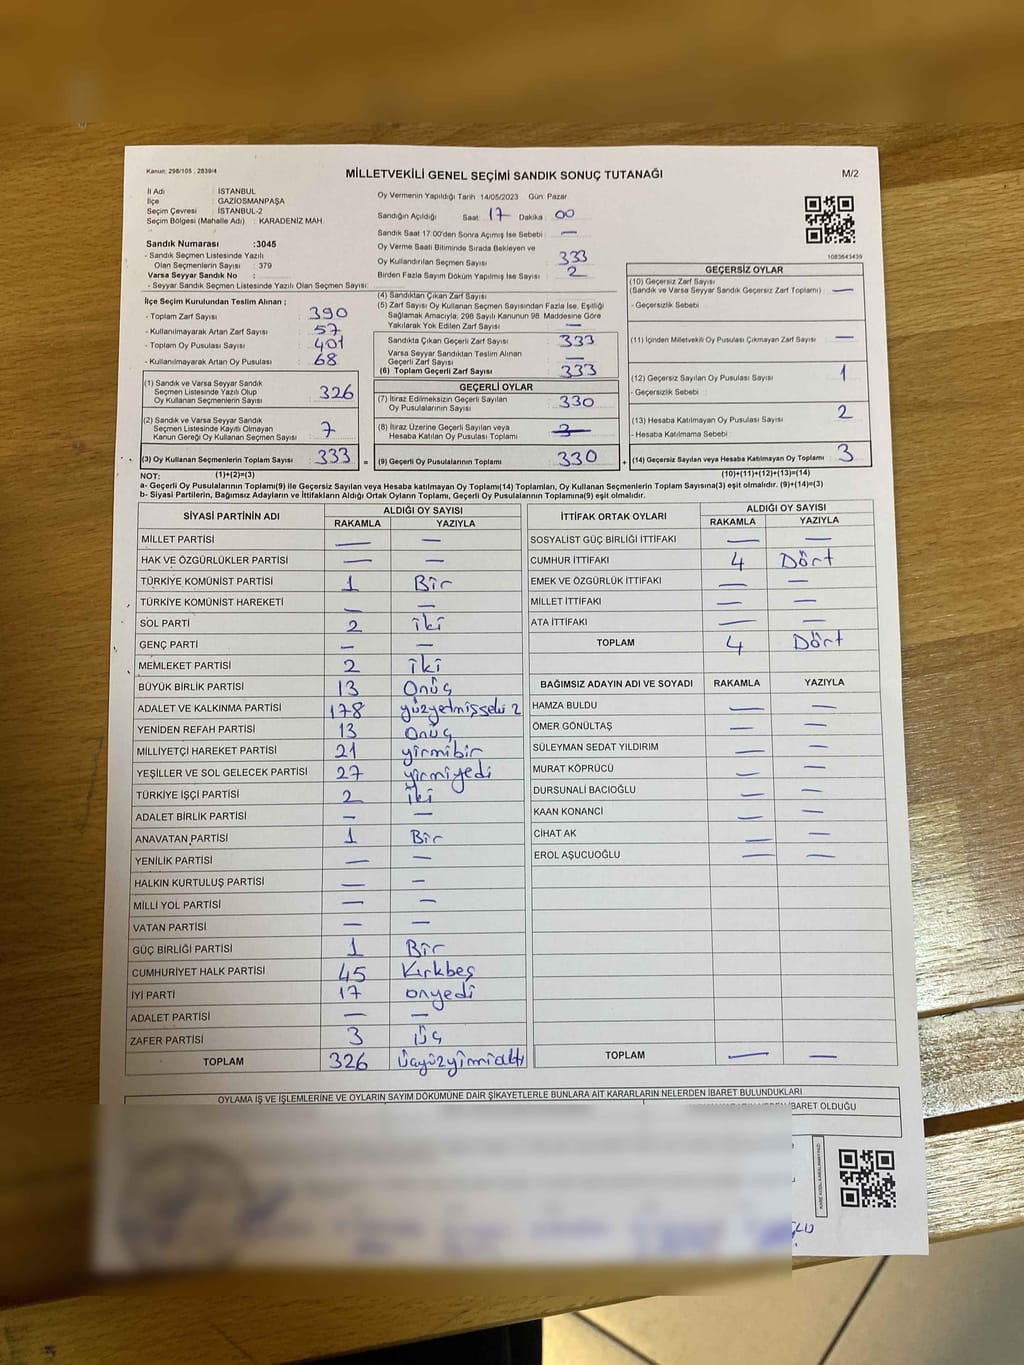 Kanun: 298/105 , 2839/4
MİLLETVEKİLİ GENEL SEÇİMİ SANDIK SONUÇ TUTANAĞI
M/2
İl Adı : İSTANBUL
İlçe : GAZİOSMANPAŞA
Seçim Çevresi : İSTANBUL-2
Seçim Bölgesi (Mahalle Adı) : KARADENİZ MAH.
Sandık Numarası :3045
- Sandık Seçmen Listesinde Yazılı
Olan Seçmenlerin Sayısı : 379
Varsa Seyyar Sandık No :
- Seyyar Sandık Seçmen Listesinde Yazılı Olan Seçmen Sayısı:
Oy Vermenin Yapıldığı Tarih :14/05/2023 Gün: Pazar
Sandığın Açıldığı Saat: 17 Dakika : 00
Sandık Saat 17:00'den Sonra Açımış İse Sebebi : —
Oy Verme Saati Bitiminde Sırada Bekleyen ve
Oy Kullandırılan Seçmen Sayısı : 333
Birden Fazla Sayım Döküm Yapılmış İse Sayısı : 2
1083643439
İlçe Seçim Kurulundan Teslim Alınan ;
- Toplam Zarf Sayısı : 390
- Kullanılmayarak Artan Zarf Sayısı : 57
- Toplam Oy Pusulası Sayısı : 401
- Kullanılmayarak Artan Oy Pusulası : 68
(1) Sandık ve Varsa Seyyar Sandık
Seçmen Listesinde Yazılı Olup
Oy Kullanan Seçmenlerin Sayısı : 326
(2) Sandık ve Varsa Seyyar Sandık
Seçmen Listesinde Kayıtlı Olmayan
Kanun Gereği Oy Kullanan Seçmen Sayısı : 7
(3) Oy Kullanan Seçmenlerin Toplam Sayısı : 333
(4) Sandıktan Çıkan Zarf Sayısı
(5) Zarf Sayısı Oy Kullanan Seçmen Sayısından Fazla İse, Eşitliği
Sağlamak Amacıyla, 298 Sayılı Kanunun 98. Maddesine Göre
Yakılarak Yok Edilen Zarf Sayısı : —
Sandıkta Çıkan Geçerli Zarf Sayısı : 333
Varsa Seyyar Sandıktan Teslim Alınan
Geçerli Zarf Sayısı : —
(6) Toplam Geçerli Zarf Sayısı : 333
GEÇERLİ OYLAR
(7) İtiraz Edilmeksizin Geçerli Sayılan
Oy Pusulalarının Sayısı : 330
(8) İtiraz Üzerine Geçerli Sayılan veya
Hesaba Katılan Oy Pusulası Toplamı : 3
= (9) Geçerli Oy Pusulalarının Toplamı : 330
GEÇERSİZ OYLAR
(10) Geçersiz Zarf Sayısı
(Sandık ve Varsa Seyyar Sandık Geçersiz Zarf Toplamı) : —
- Geçersizlik Sebebi :
(11) İçinden Milletvekili Oy Pusulası Çıkmayan Zarf Sayısı : —
(12) Geçersiz Sayılan Oy Pusulası Sayısı : 1
- Geçersizlik Sebebi :
(13) Hesaba Katılmayan Oy Pusulası Sayısı : 2
- Hesaba Katılmama Sebebi :
+ (14) Geçersiz Sayılan veya Hesaba Katılmayan Oy Toplamı : 3
NOT: (1)+(2)=(3) (10)+(11)+(12)+(13)=(14)
a- Geçerli Oy Pusulalarının Toplamı(9) ile Geçersiz Sayılan veya Hesaba Katılmayan Oy Toplamı(14) Toplamları, Oy Kullanan Seçmenlerin Toplam Sayısına(3) eşit olmalıdır. (9)+(14)=(3)
b- Siyasi Partilerin, Bağımsız Adayların ve İttifakların Aldığı Ortak Oyların Toplamı, Geçerli Oy Pusulalarının Toplamına(9) eşit olmalıdır.
SİYASİ PARTİNİN ADI ALDIĞI OY SAYISI
RAKAMLA YAZIYLA
MİLLET PARTİSİ — —
HAK VE ÖZGÜRLÜKLER PARTİSİ — —
TÜRKİYE KOMÜNİST PARTİSİ 1 Bir
TÜRKİYE KOMÜNİST HAREKETİ — —
SOL PARTİ 2 iki
GENÇ PARTİ — —
MEMLEKET PARTİSİ 2 iki
BÜYÜK BİRLİK PARTİSİ 13 Onüç
ADALET VE KALKINMA PARTİSİ 178
YENİDEN REFAH PARTİSİ 13 Onüç
MİLLİYETÇİ HAREKET PARTİSİ 21 yirmibir
YEŞİLLER VE SOL GELECEK PARTİSİ 27 yirmiyedi
TÜRKİYE İŞÇİ PARTİSİ 2 iki
ADALET BİRLİK PARTİSİ — —
ANAVATAN PARTİSİ 1 Bir
YENİLİK PARTİSİ — —
HALKIN KURTULUŞ PARTİSİ — —
MİLLİ YOL PARTİSİ — —
VATAN PARTİSİ — —
GÜÇ BİRLİĞİ PARTİSİ 1 Bir
CUMHURİYET HALK PARTİSİ 45 Kırkbeş
İYİ PARTİ 17 onyedi
ADALET PARTİSİ — —
ZAFER PARTİSİ 3 üç
TOPLAM 326 üçyüzyirmialtı
İTTİFAK ORTAK OYLARI ALDIĞI OY SAYISI
RAKAMLA YAZIYLA
SOSYALİST GÜÇ BİRLİĞİ İTTİFAKI — —
CUMHUR İTTİFAKI 4 Dört
EMEK VE ÖZGÜRLÜK İTTİFAKI — —
MİLLET İTTİFAKI — —
ATA İTTİFAKI — —
TOPLAM 4 Dört
BAĞIMSIZ ADAYIN ADI VE SOYADI RAKAMLA YAZIYLA
HAMZA BULDU — —
ÖMER GÖNÜLTAŞ — —
SÜLEYMAN SEDAT YILDIRIM — —
MURAT KÖPRÜCÜ — —
DURSUNALİ BACIOĞLU — —
KAAN KONANCİ — —
CİHAT AK — —
EROL AŞUCUOĞLU — —
TOPLAM — —
OYLAMA İŞ VE İŞLEMLERİNE VE OYLARIN SAYIM DÖKÜMÜNE DAİR ŞİKAYETLERLE BUNLARA AİT KARARLARIN NELERDEN İBARET BULUNDUKLARI
İBARET OLDUĞU